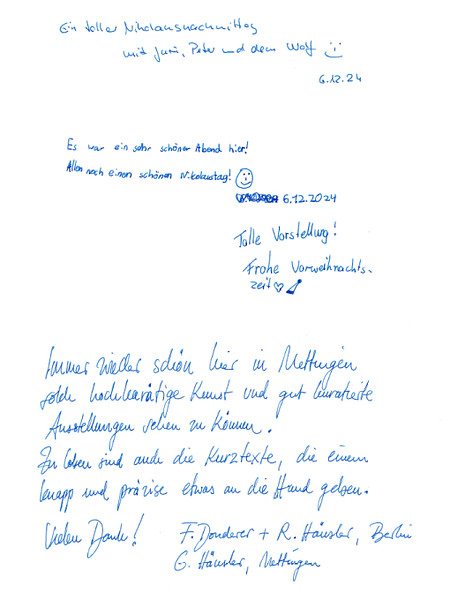 Ein toller Nikolausnachmittag
mit Juri, Peter und dem Wolf
6.12.24
Es war ein sehr schöner Abend hier!
Allen noch einen schönen Nikolaustag!
6.12.2024
Tolle Vorstellung!
Frohe Vorweihnachts-
zeit
Immer wieder schön hier in Mettingen
solch hochkarätige Kunst und gut kuratierte
Ausstellungen sehen zu können.
Zu loben sind auch die Kurztexte, die einem
knapp und präzise etwas an die Hand geben.
Vielen Dank! F. Donderer + R. Häusler, Berlin
G. Häusler, Mettingen